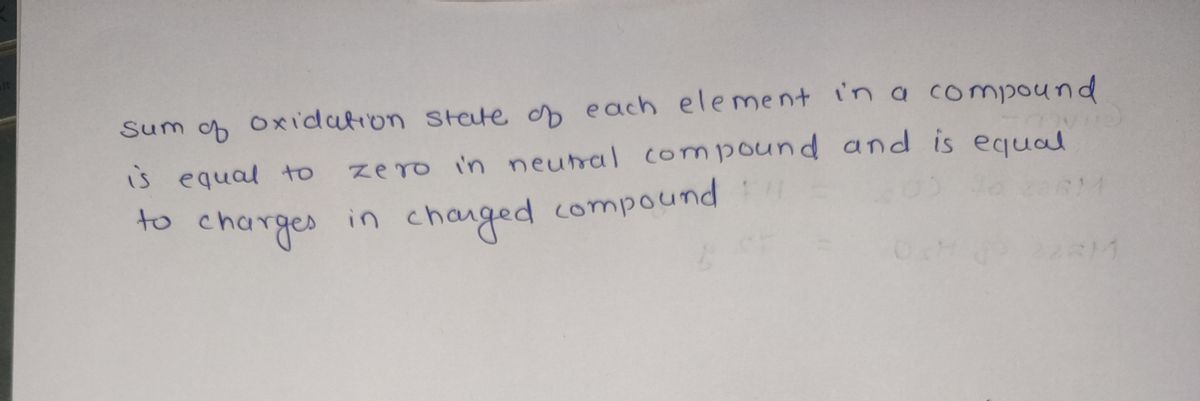 sum of oxidation state of each element in a compound
is equal to zero in neutral compound and is equal
to charges in charged compound